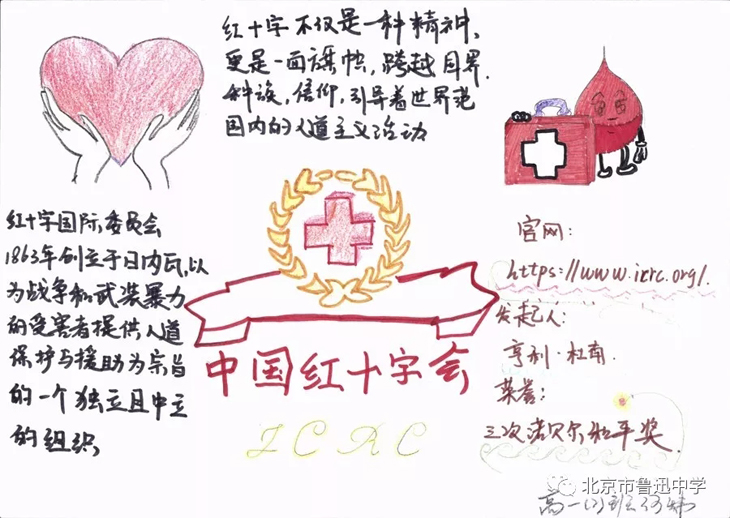 红十字不仅是一种精神,
更是一面旗帜,跨越国界,
种族,信仰,引导着世界范
围内的人道主义活动
红十字国际委员会
1863年创立于日内瓦,以
为战争和武装暴力
的受害者提供人道
保护与援助为宗旨
的一个独立且中立
的组织
中国红十字会
ICRC
官网:
https://www.icrc.org/.
发起人:
亨利·杜南.
荣誉:
三次诺贝尔和平奖.
北京市鲁迅中学
高一(2)班